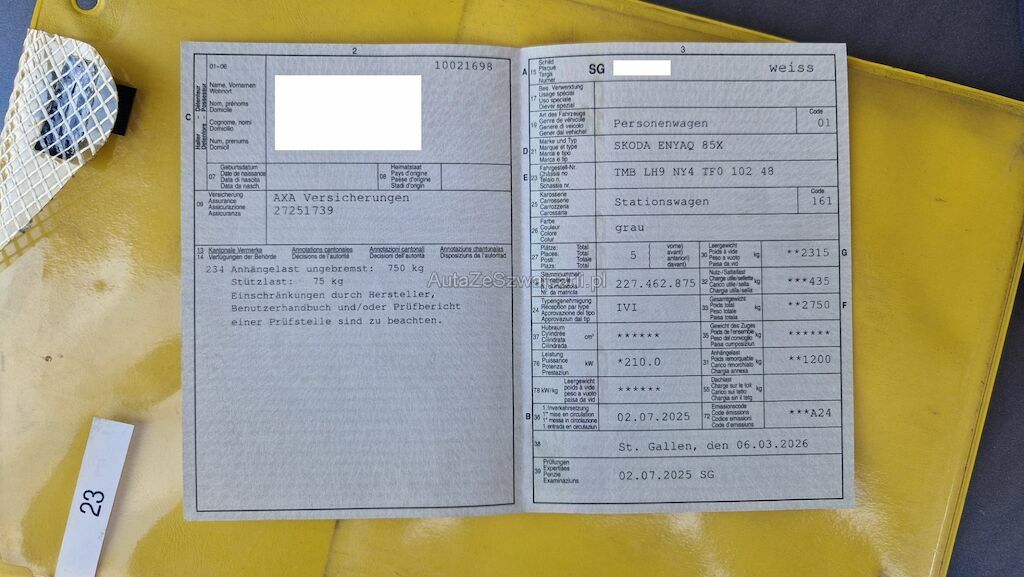 2
01-06
10021698
Name, Vornamen
Wohnort
Nom, prénoms
Domicile
Cognome, nomi
Domicilio
Num, prenums
Domicil
C
Halter Détenteur
Detentore Possessur
07
Geburtsdatum
Date de naissance
Data di nascita
Data da nasch.
08
Heimatstaat
Pays d'origine
Paese d'origine
Stadi d'origin
09
Versicherung
Assurance
Assicurazione
Assicuranza
AXA Versicherungen
27251739
13 Kantonale Vermerke Annotations cantonales Annotazioni cantonali Annotaziuns chantunalas
14 Verfügungen der Behörde Décisions de l'autorité Decisioni dell'autorità Disposiziuns da l'autoritad
234 Anhängelast ungebremst: 750 kg
Stützlast: 75 kg
Einschränkungen durch Hersteller,
Benutzerhandbuch und/oder Prüfbericht
einer Prüfstelle sind zu beachten.
3
A 15
Schild
Plaque
Targa
Numer
SG
weiss
17
Bes. Verwendung
Usage spécial
Uso speciale
Diever spezial
19
Art des Fahrzeugs
Genre de véhicule
Genere di veicolo
Gener dal vehichel
Personenwagen
Code
01
D 21
Marke und Typ
Marque et type
Marca e tipo
Marca e tip
SKODA ENYAQ 85X
E 23
Fahrgestell-Nr.
Châssis no
Telaio n.
Schassis nr.
TMB LH9 NY4 TF0 102 48
25
Karosserie
Carrosserie
Carrozzeria
Carossaria
Stationswagen
Code
161
26
Farbe
Couleur
Colore
Colur
grau
27
Plätze: Total
Places: Total
Posti: Totale
Plazs: Total
5
vorne)
avant)
anteriori)
davant)
30
Leergewicht
Poids à vide
Peso a vuoto
Paisa da vid
kg
**2315
G
Stammnummer
Nr. da matricla
227.462.875
32
Nutz-/Sattellast
Charge utile/sellette
Carico utile/sella
Chargia utila/sella
kg
***435
24
Typengenehmigung
Réception par type
Approvazione del tipo
Approvaziun dal tip
IVI
33
Gesamtgewicht
Poids total
Peso totale
Paisa totala
kg
**2750
F
37
Hubraum
Cylindrée
Cilindrata
Cilindrada
cm³
******
35
Gewicht des Zuges
Poids de l'ensemble
Peso del convoglio
Paisa cumposiziun
kg
******
76
Leistung
Puissance
Potenza
Prestaziun
kW
*210.0
31
Anhängelast
Poids remorquable
Carico rimorchiato
Chargia annexa
kg
**1200
78 kW/kg
Leergewicht
poids à vide
peso a vuoto
paisa da vid
******
55
Dachlast
Charge sur le toit
Carico sul tetto
Chargia sin il tetg
kg
B 36
1. Inverkehrsetzung
1re mise en circulation
1a messa in circolazione
1. entrada en circulaziun
02.07.2025
72
Emissionscode
Code émissions
Codice emissioni
Code d'emissiuns
***A24
38
St. Gallen, den 06.03.2026
39
Prüfungen
Expertises
Perizie
Examinaziuns
02.07.2025 SG
AutaZeSzwajcarii.pl
23